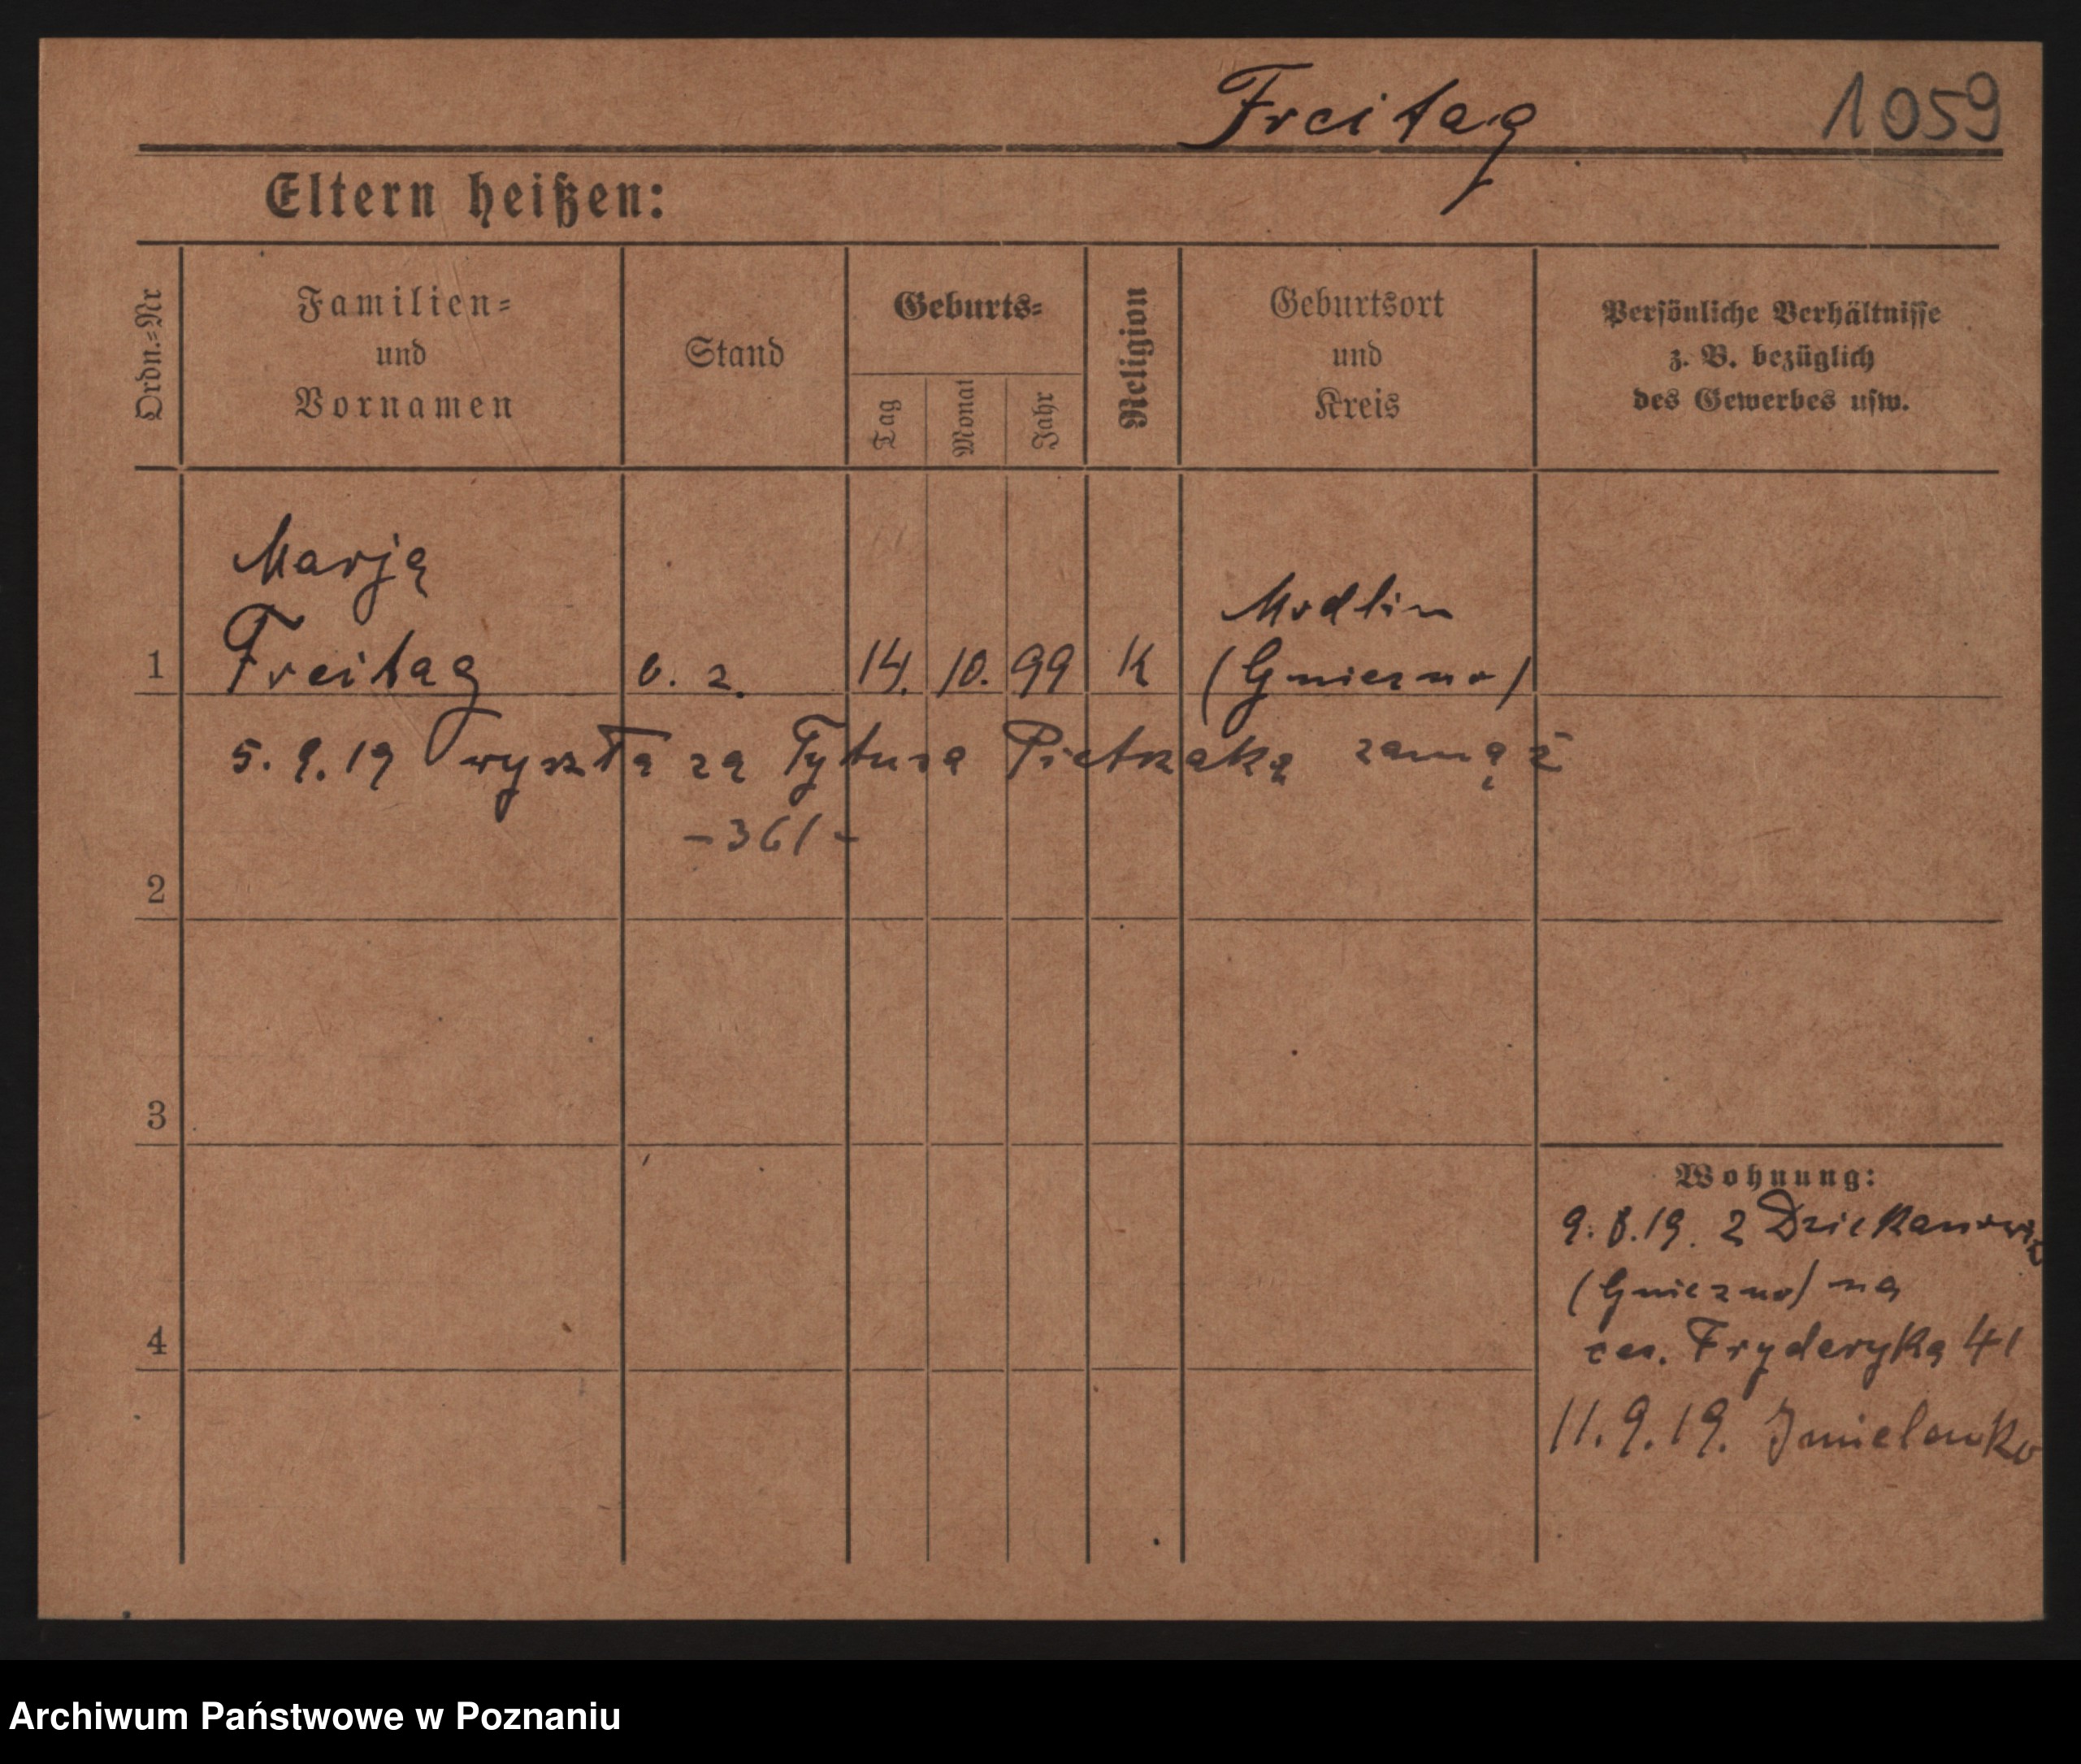 Freitag 1059
Eltern heißen:
Ordn.=Nr
Familien=
und
Vornamen
Stand
Geburts=
Tag
Monat
Jahr
Religion
Geburtsort
und
Kreis
Persönliche Verhältnisse
z. B. bezüglich
des Gewerbes usw.
Marja
Modlin
1 Freitag 14. 10. 99 K (Gniezno)
5. 9. 19 wyszła za Tytusa Pietrzaka zamąż
-361-
2
3
4
Wohnung:
9. 8. 19. z
(Gniezno) na
ces. Fryderyka 41
11. 9. 19. Imielenko
Archiwum Państwowe w Poznaniu